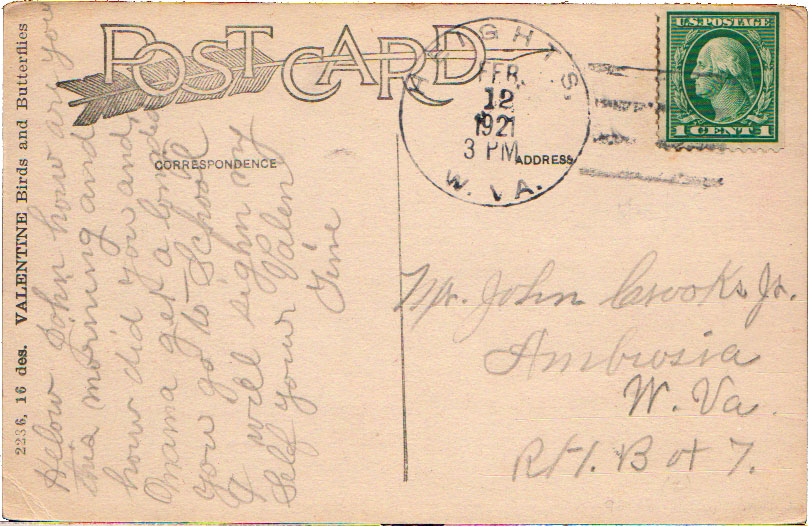 POST CARD
HEIGHTS.
FEB.
12
1921
3 PM
W. VA.
U.S. POSTAGE
1 CENT 1
CORRESPONDENCE
ADDRESS
2236, 16 des. VALENTINE Birds and Butterflies
Helow John how are you
this morning and
how did you and
mama get a long did
you go to School
I will sighn my
Self your Valen
tine
Mr. John Crooks Jr.
Ambrosia
W. Va.
Rt 1. Box 7.